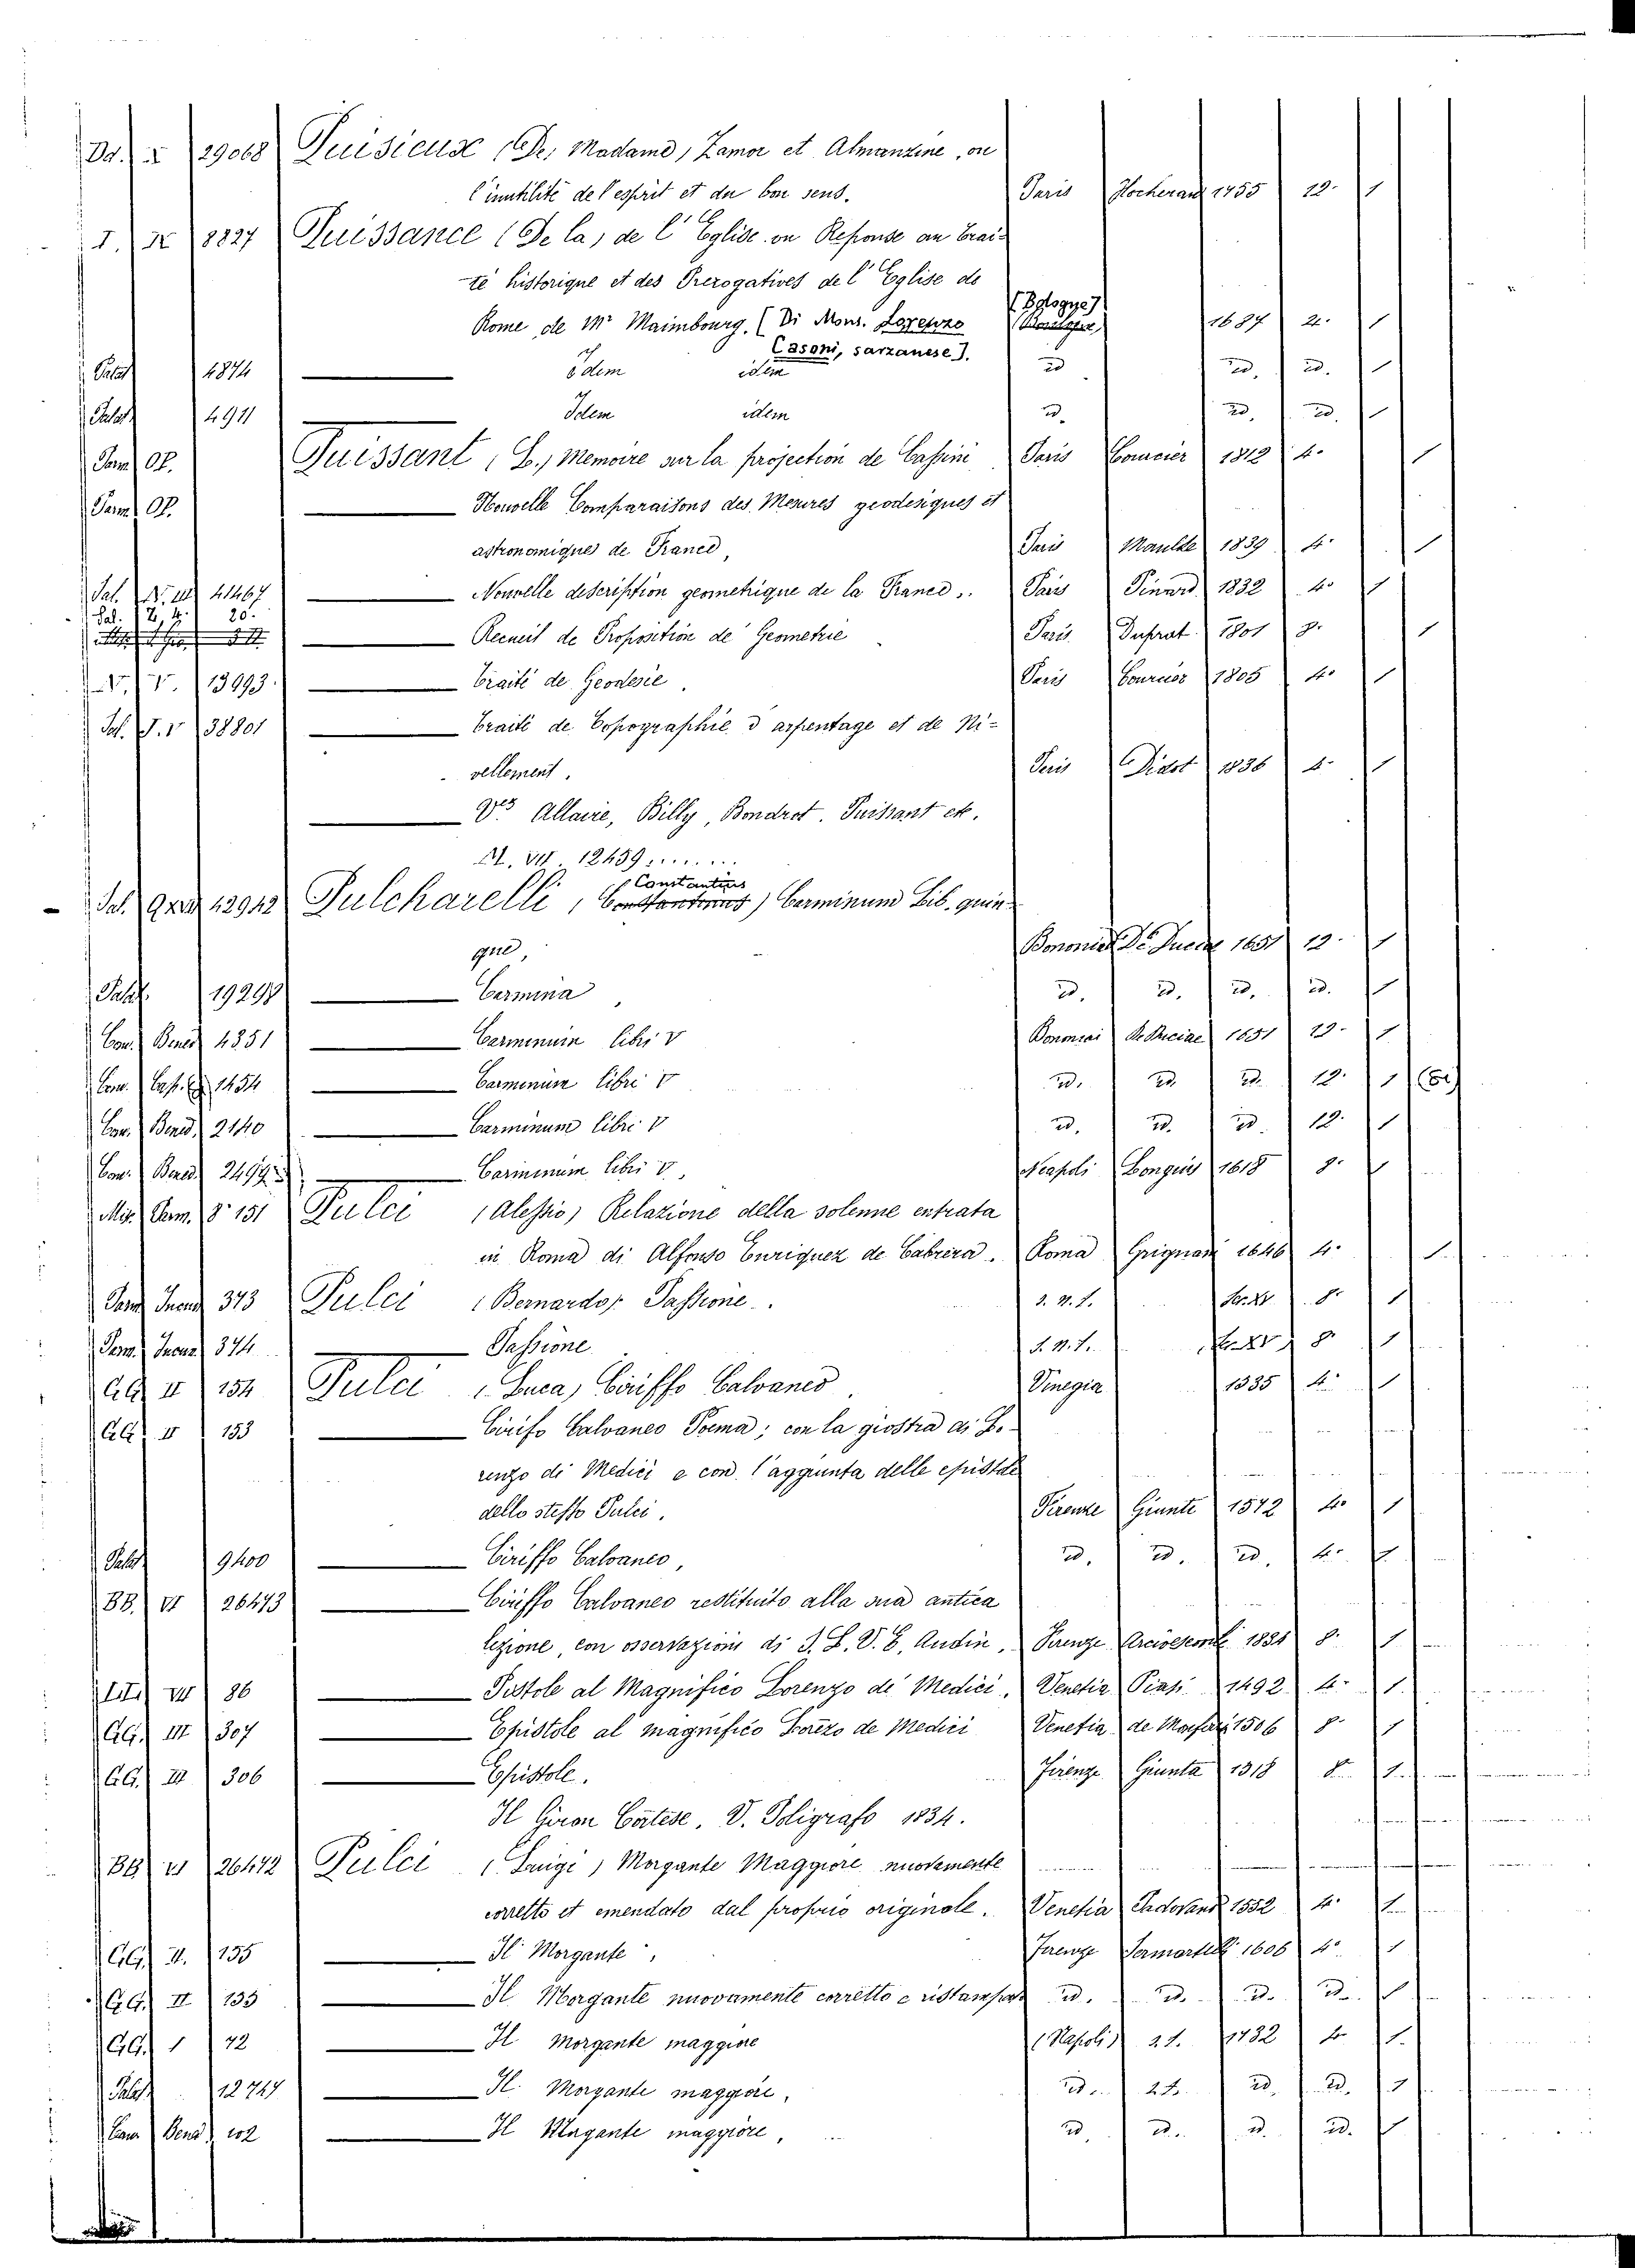 29068 Puisieux (De) Madame, Zamor et Almanzine, ou
l'inutilité de l'esprit et du bon sens. Paris 1755 12. 1
I. 8827 Puissance (De la) de l'Eglise ou Reponse au Trai-
té historique et des Prerogatives de l'Eglise de
Rome de Mr Maimbourg. (Di Mons. Lorenzo [Bologne] 1687 1
Casoni, sarzanese].
Palat 4874 Idem idem id id. id. 1
Palat 4911 Idem idem id. id. id. 1
Pam. OP. Puissant (L.) Memoire sur la projection de Cassini Paris Courcier 1812 4. 1
Pam. OP. Nouvelle Comparaisons des Mesures geodesiques et
astronomiques de France, Paris Maulde 1839 4. 1
Pal. 41467 Nouvelle description geometrique de la France. Paris Pinard 1832 4. 1
Pal. 2, 4. 20. Recueil de Proposition de Geometrie Paris Duprat 1801 8. 1
V. V. 13993 Traité de Geodesie Paris Courcier 1805 4. 1
38801 Traité de Topographie d'arpentage et de Ni-
vellement. Paris Didot 1836 4. 1
Vos Allaire, Billy, Bondrot. Puissant etc.
M. VII. 12459 ........
Constantius
12912 Pulcharelli, Constantinus) Carminum Lib. quin
que, 1651 12. 1
Palat. 19298 Carmina, id. id. id. id. 1
Con. Bened 4351 Carminum libri V 1651 12. 1
Con. Cap. 1454 Carminum libri V id. id. id. 12. 1
Con. Bened. 2140 Carminum libri V id. id. id. 12. 1
Con. Bened. Carminum libri V, Neapoli Longius 1618 8. 1
Mis. Pam. 8. 151 Pulci (Alessio) Relazione della solenne entrata
in Roma di Alfonso Enriquez de Cabrera. Roma Grignani 1646 4. 1
373 Pulci (Bernardo) Passione. S. N. T. Sec. XV. 8. 1
Pam. Incun 374 Passione S. N. T. Sec. XV 8. 1
GG II 154 Pulci (Luca) Ciriffo Calvaneo. Vinegia 1535 4. 1
GG. II 153 Cirifo Calvaneo Poema; con la giostra di Lo-
renzo di Medici e con l'aggiunta delle epistole
dello stesso Pulci. Firenze Giunte 1572 4. 1
Palat 9400 Ciriffo Calvaneo, id. id. id. 4. 1
BB. VI 26473 Ciriffo Calvaneo restituito alla sua antica
lezione, con osservazioni di S. L. V. E. Audin. Firenze 8. 1
86 Pistole al Magnifico Lorenzo de' Medici. Venetia 1492 4. 1
GG. III 307 Epistole al magnifico Lorezo de Medici Venetia 1506 8. 1
GG. III 306 Epistole. Firenze Giunta 1518 8. 1
Il Giron Cortese. V. Poligrafo 1834.
BB VI 26472 Pulci (Luigi) Morgante Maggiore nuovamente
corretto et emendato dal proprio originale. Venetia 1552 4. 1
GG. II. 155 Il Morgante, Firenze Sermartelli 1606 4. 1
GG. II 133 Il Morgante nuovamente corretto e ristampato id. id. id. id. 1
GG. 1 72 Il Morgante maggiore (Napoli) 1732 4. 1
Palat 12727 Il Morgante maggiore, id. id. id. 1
Il Morgante maggiore, id. id. id. id. 1